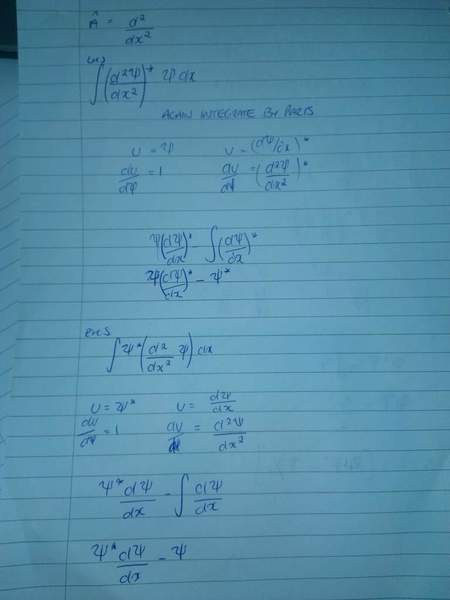 Â = d²/dx²
LHS
∫(d²Ψ/dx²)* Ψ dx
AGAIN INTEGRATE BY PARTS
U = Ψ V = (dΨ/dx)*
du/dΨ = 1 dv/dΨ = (d²Ψ/dx²)*
Ψ(dΨ/dx)* - ∫(dΨ/dx)*
Ψ(dΨ/dx)* - Ψ*
RHS
∫Ψ*(d²/dx² Ψ) dx
U = Ψ* V = dΨ/dx
du/dΨ = 1 dv/ = d²Ψ/dx²
Ψ* dΨ/dx - ∫ dΨ/dx
Ψ* dΨ/dx - Ψ